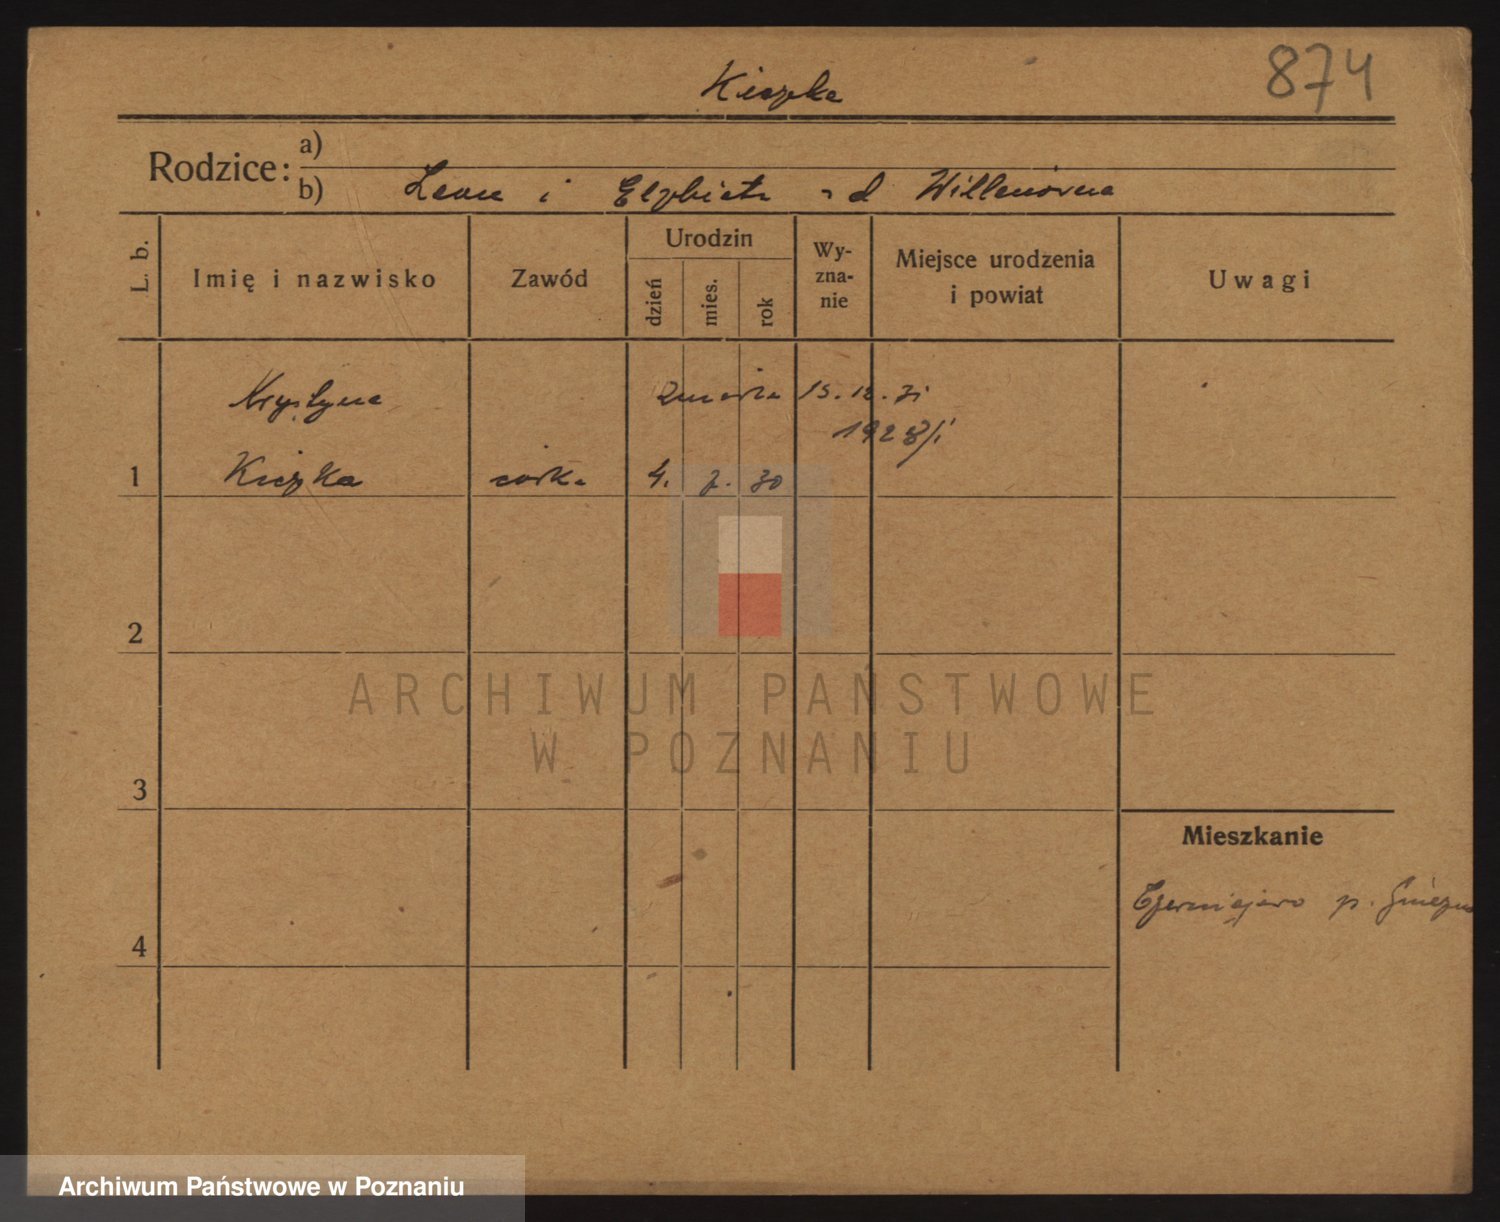 874
Kiczka
Rodzice: a)
b) Leon i Elżbieta z d Willenówna
L. b.
Imię i nazwisko
Zawód
Urodzin
dzień
mies.
rok
Wy-
zna-
nie
Miejsce urodzenia
i powiat
Uwagi
Krystyna zmarła 15.12.31
1928/i
1 Kiczka córka 4. 7. 30
2
3
4
Mieszkanie
Czerniejewo p. Gniezno
ARCHIWUM PAŃSTWOWE
W POZNANIU
Archiwum Państwowe w Poznaniu